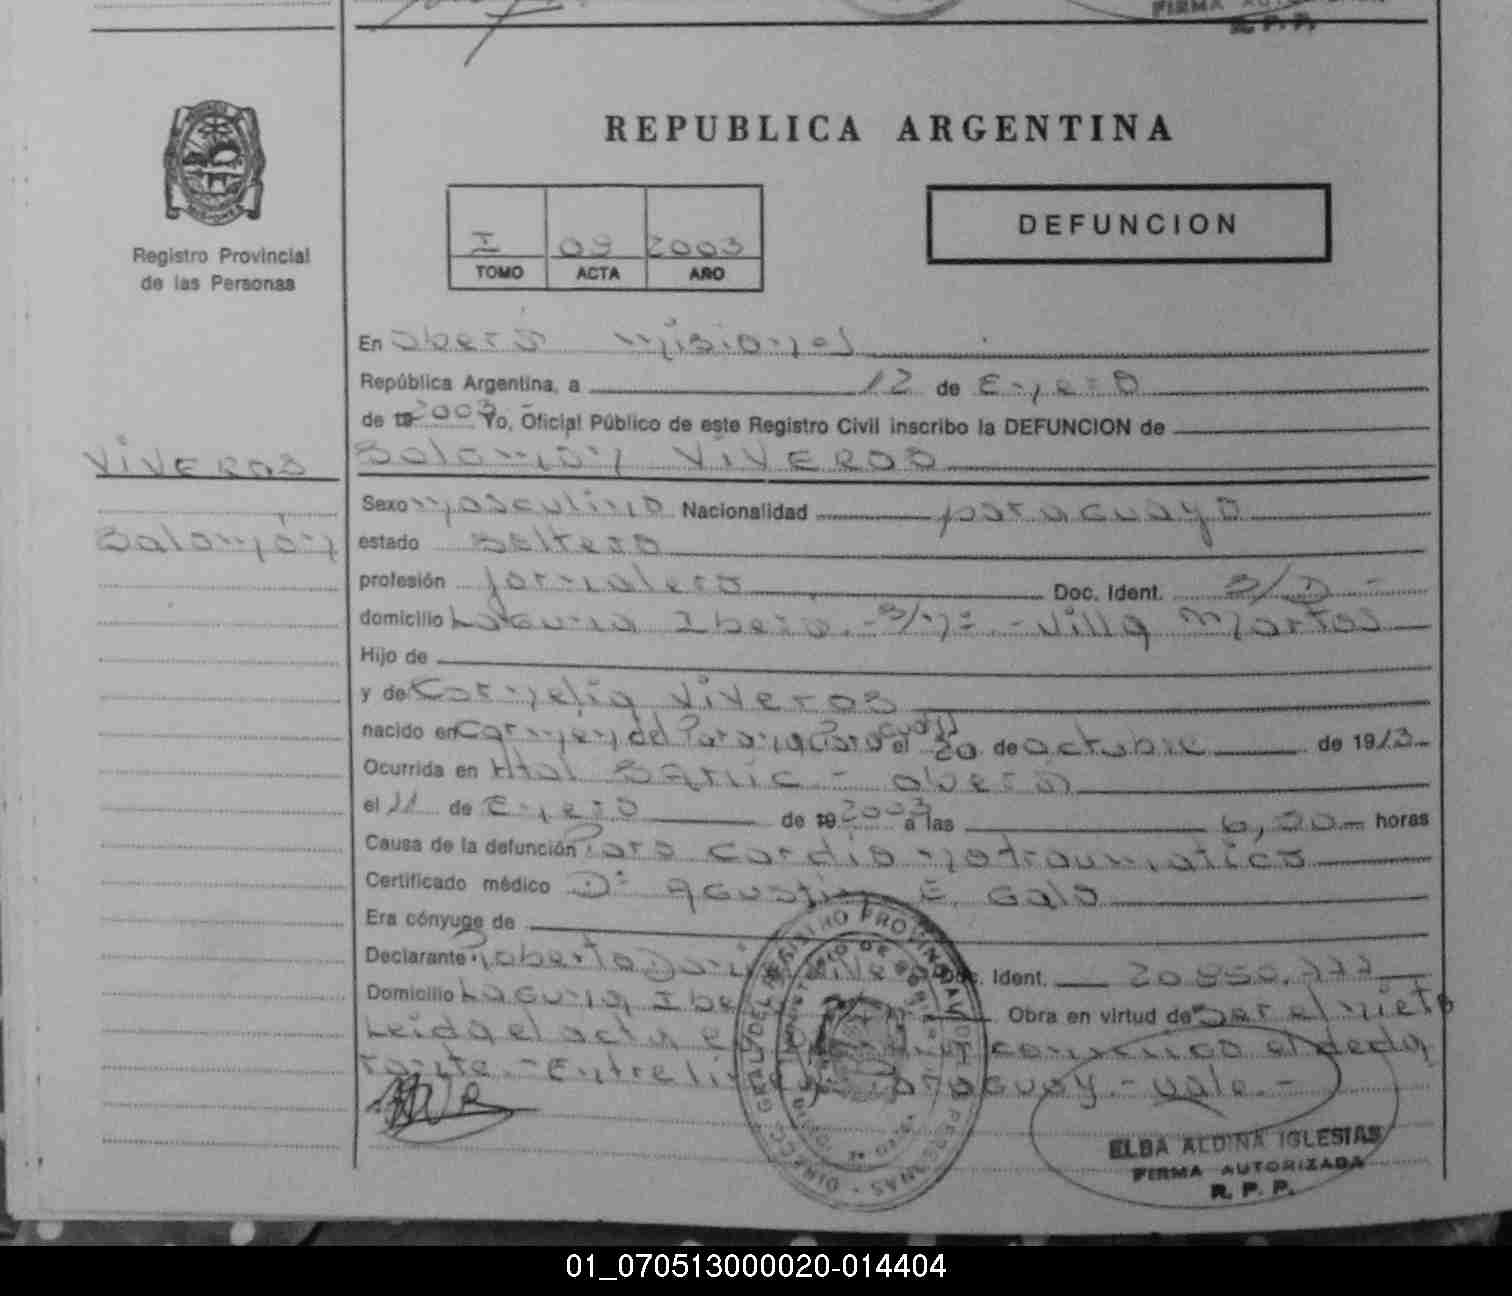 FIRMA AUTORIZADA
R. P. P.
REPUBLICA ARGENTINA
Registro Provincial
de las Personas
I 09 2003
TOMO ACTA AÑO
DEFUNCION
En Oberá Misiones
República Argentina, a 12 de Enero
de 19 2003 Yo, Oficial Público de este Registro Civil inscribo la DEFUNCION de
VIVEROS
Salomón
Salomón VIVEROS
Sexo masculino Nacionalidad paraguayo
estado Soltero
profesión Jornalero Doc. Ident. S/D -
domicilio Laguna Iberá - S/nº - Villa Martos
Hijo de
y de Cornelia Viveros
nacido en Carmen del Paraná Paraguay el 20 de octubre de 1913
Ocurrida en Htal SAMIC - Oberá
el 11 de Enero de 19 2003 a las 6,00 horas
Causa de la defunción Paro Cardio no traumatico
Certificado médico Dr Agustin E. Galo
Era cónyuge de
Declarante Roberto Doc. Ident. 20.950.777
Domicilio Laguna Obra en virtud de Ser el nieto
Leida el acta conmigo el decla
rante. - Entre Paraguay - vale. -
ELBA ALDINA IGLESIAS
FIRMA AUTORIZADA
R. P. P.
01_070513000020-014404